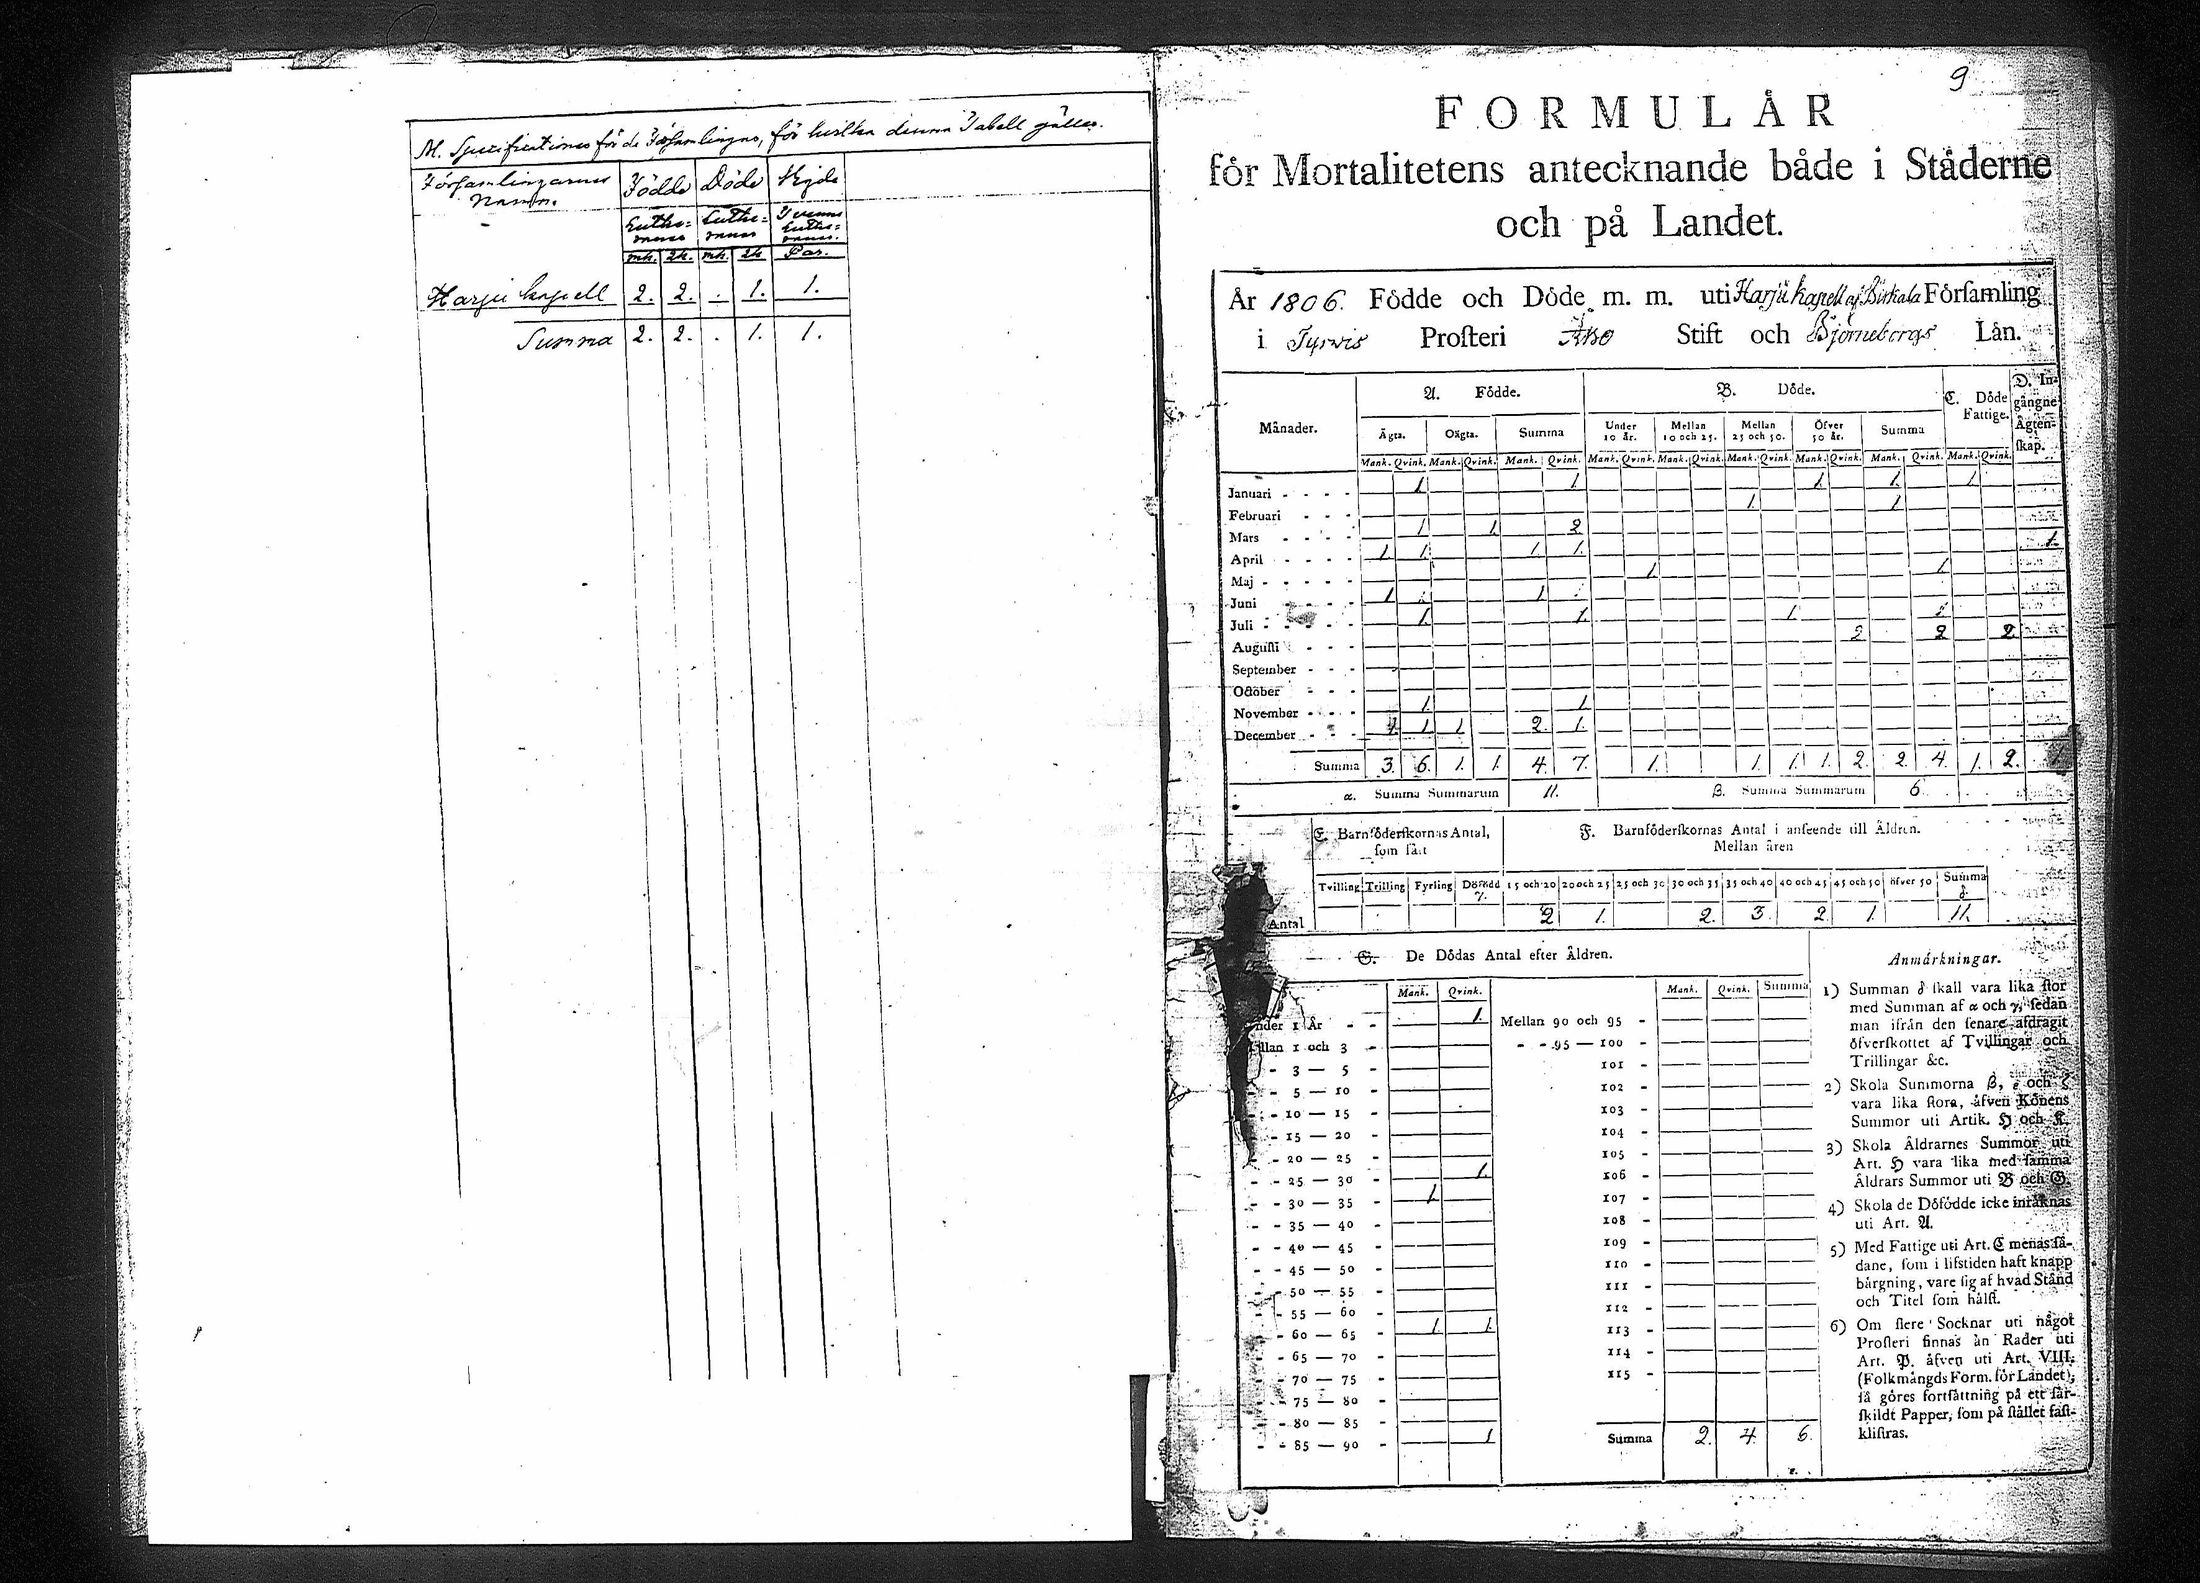 M. Specification för de Församlingar, för hvilka denna Tabell gäller.
Församlingarnes Namn. Födde Döde Vigde
Luthe= raner Luthe= raner Tvenne Luthe= raner.
mk. qk. mk. qk. Par.
Harju kapell 2. 2. . 1. 1.
Summa 2. 2. . 1. 1.
9
FORMULÅR
för Mortalitetens antecknande både i Ståderne
och på Landet.
År 1806. Födde och Döde m. m. uti Harju kapell af Birkala Förſamling
i Tyrvis Proſteri Åbo Stift och Björneborgs Lån.
Månader. A. Födde. B. Döde. C. Döde Fattige. D. In- gångne Ägten- ſkap.
Ägta. Oägta. Summa Under 10 år. Mellan 10 och 25. Mellan 25 och 50. Öfver 50 år. Summa
Mank. Qvink. Mank. Qvink. Mank. Qvink. Mank. Qvink. Mank. Qvink. Mank. Qvink. Mank. Qvink. Mank. Qvink. Mank. Qvink.
Januari - - - - 1. 1. 1. 1. 1.
Februari - - - 1. 1.
Mars - - - - 1. 1. 2.
April - - - - 1. 1. 1. 1. 1.
Maj - - - - - 1. 1.
Juni - - - - 1. 1.
Juli - - - - - 1. 1. 1.
Auguſti - - - 2. 2. 2.
September - - -
October - - -
November - - - 1. 1.
December - - - 1. 1. 1. 2. 1.
Summa 3. 6. 1. 1. 4. 7. 1. 1. 1. 1. 2. 2. 4. 1. 2. 1.
α. Summa Summarum 11. β. Summa Summarum 6.
E. Barnföderſkornas Antal, ſom fått F. Barnföderſkornas Antal i anſeende till Åldren.
Mellan åren
Tvilling Trilling Fyrling Döfödd γ. 15 och 20 20 och 25 25 och 30 30 och 35 35 och 40 40 och 45 45 och 50 öfver 50 Summa δ
Antal 2. 1. 2. 3. 2. 1. 11.
G. De Dödas Antal efter Åldren.
Mank. Qvink.
nder 1 År - - 1.
llan 1 och 3 -
- 3 — 5 -
- - 5 — 10 -
- - 10 — 15 -
- - 15 — 20 -
- - 20 — 25 -
- - 25 — 30 - 1.
- - 30 — 35 - 1.
- - 35 — 40 -
- - 40 — 45 -
- - 45 — 50 -
- - 50 — 55 -
- - 55 — 60 -
- - 60 — 65 - 1. 1.
- - 65 — 70 -
- - 70 — 75 -
- - 75 — 80 -
- - 80 — 85 -
- - 85 — 90 - 1.
Mank. Qvink. Summa
Mellan 90 och 95 -
- - 95 — 100 -
101 -
102 -
103 -
104 -
105 -
106 -
107 -
108 -
109 -
110 -
111 -
112 -
113 -
114 -
115 -
Summa 2. 4. 6.
ε.
Anmärkningar.
1) Summan δ ſkall vara lika ſtor
med Summan af α och γ, ſedan
man ifrån den ſenare afdragit
öfverſkottet af Tvillingar och
Trillingar &c.
2) Skola Summorna β, ε och ζ
vara lika ſtora, åfven Könens
Summor uti Artik. H och K.
3) Skola Åldrarnes Summor uti
Art. H vara lika med ſamma
Åldrars Summor uti B och G.
4) Skola de Döfödde icke inråknas
uti Art. A.
5) Med Fattige uti Art. C menas ſå-
dane, ſom i lifstiden haft knapp
bårgning, vare ſig af hvad Stånd
och Titel ſom hålſt.
6) Om flere Socknar uti något
Proſteri finnas ån Rader uti
Art. P. åfven uti Art. VIII.
(Folkmångds Form. för Landet),
ſå göres fortſåttning på ett ſår-
ſkildt Papper, ſom på ſtållet faſt-
kliſtras.